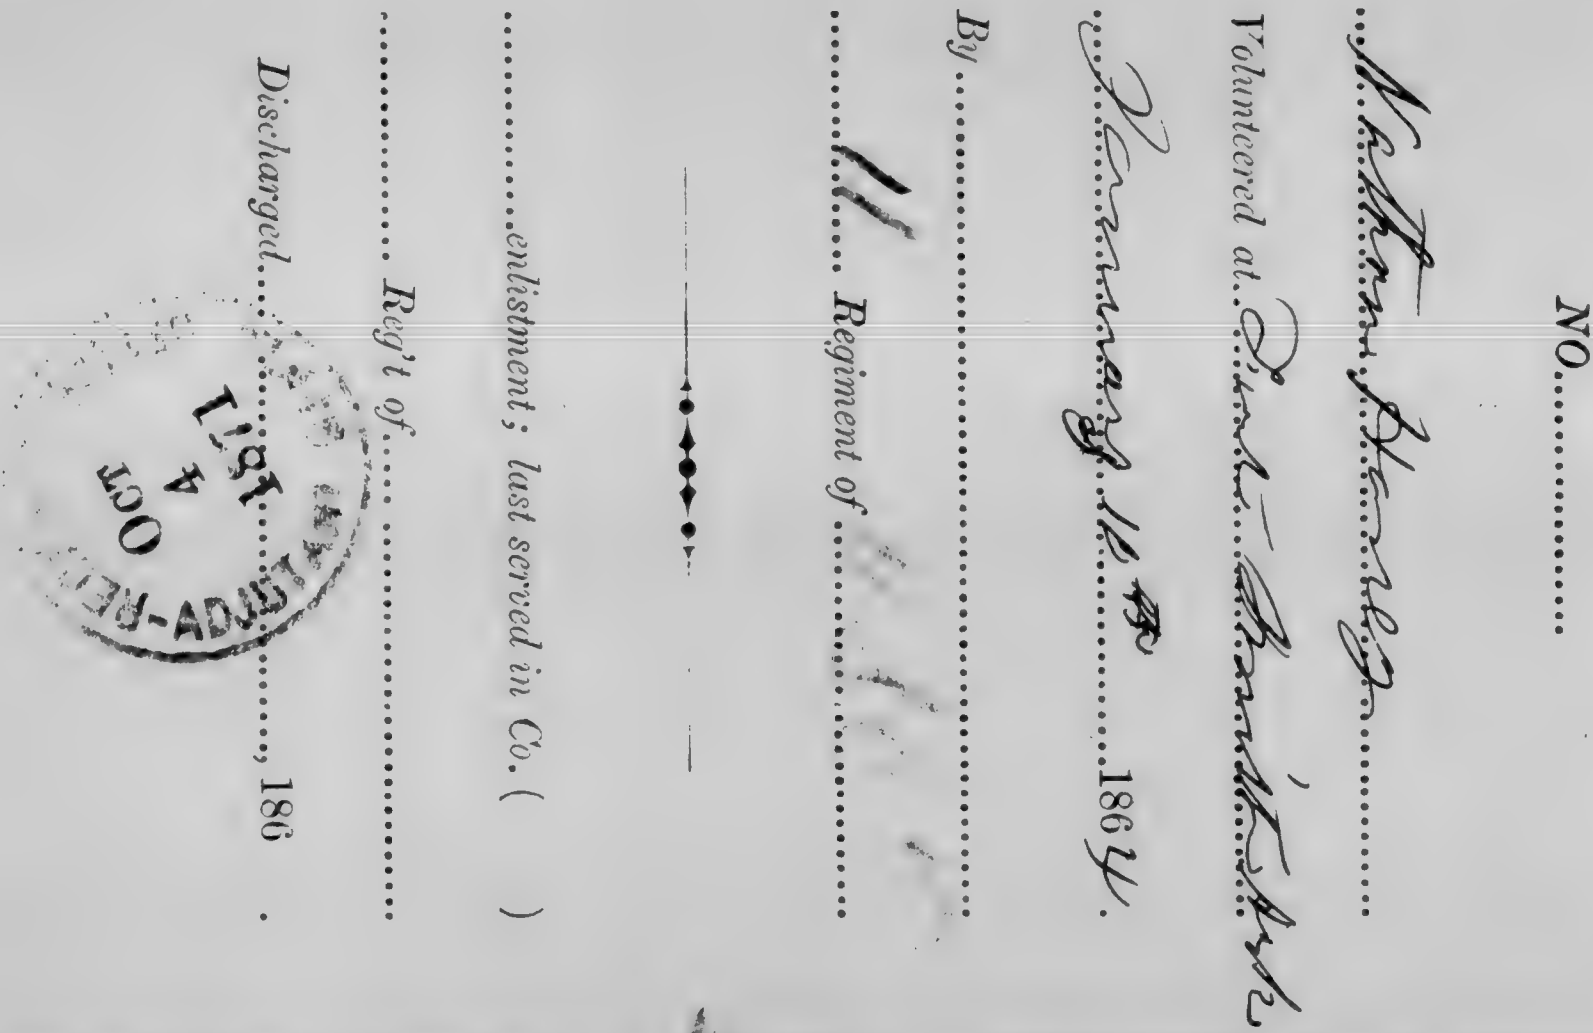 NO.
Nathan Hanly
Volunteered at
January 16 1864.
By
11 Regiment of
enlistment; last served in Co. ( )
Reg't of
Discharged , 186 .
ADJUTANT
OCT
4
1871